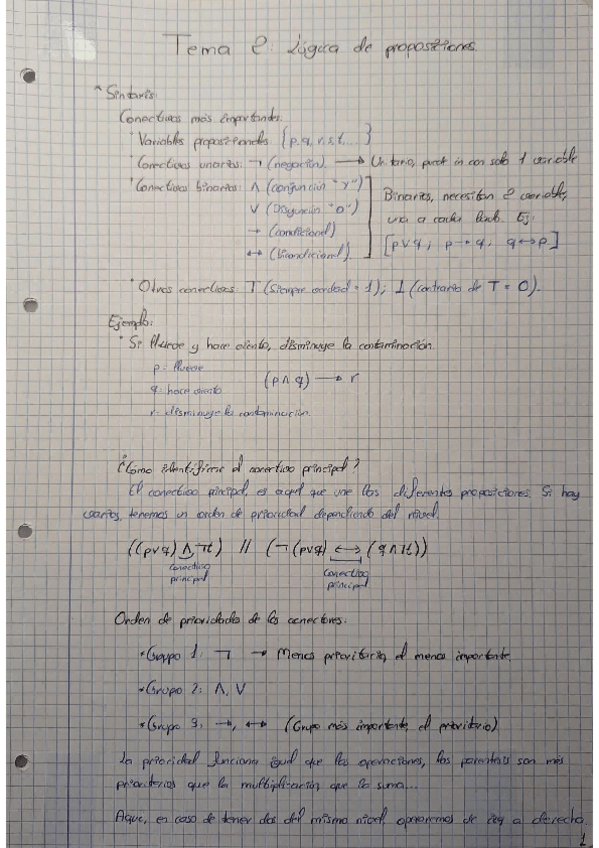 Tema 2: Lógica de proposiciones.
* Sintaxis:
Conectivos más importantes.
• Variables proposicionales {p, q, r, s, t, ... }
• Conectivas unarias: ¬ (negación). → Unitario, puede ir con solo 1 variable
• Conectivas binarias: ∧ (conjunción "y")
∨ (Disyunción "o")
→ (condicional)
↔ (bicondicional).
Binarios, necesitan 2 variables,
una a cada lado. Ej:
[p∨q ; p→q ; q↔p.]
• Otros conectivos: T (siempre verdad = 1); ⊥ (contrario de T = 0).
Ejemplo:
• Si llueve y hace viento, disminuye la contaminación.
p: llueve
q: hace viento
(p∧q) → r
r: disminuye la contaminación.
¿Cómo identificar el conectivo principal?
El conectivo principal, es aquel que une las diferentes proposiciones. Si hay
varios, tenemos un orden de prioridad dependiendo del nivel.
((p∨q) ∧ ¬t) // (¬(p∨q) ↔ (q∧¬t))
conectivo
principal
Conectivo
principal
Orden de prioridades de los conectores:
• Grupo 1: ¬ → Menos prioritario, el menos importante.
• Grupo 2: ∧, ∨
• Grupo 3: →, ↔ (Grupo más importante, el prioritario)
La prioridad funciona igual que las operaciones, los paréntesis son más
prioritarios que la multiplicación, que la suma...
Aquí, en caso de tener dos del mismo nivel, operaremos de izq a derecha.
1